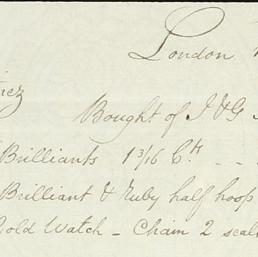 London
Bought of J & G
Brilliants 1 3/16 Cts
Brilliant & Ruby half hoop
Gold Watch - Chain 2 seals